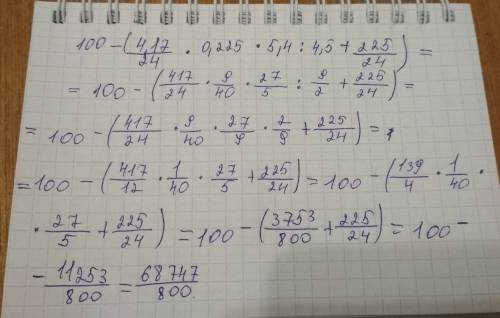 100 - (4,17/24 · 0,225 · 5,4 : 4,5 + 225/24) =
= 100 - (417/24 · 9/40 · 27/5 : 9/2 + 225/24) =
= 100 - (417/24 · 9/40 · 27/9 · 2/9 + 225/24) = 
= 100 - (417/12 · 1/40 · 27/5 + 225/24) = 100 - (139/4 · 1/40 ·
· 27/5 + 225/24) = 100 - (3753/800 + 225/24) = 100 -
- 11253/800 = 68747/800